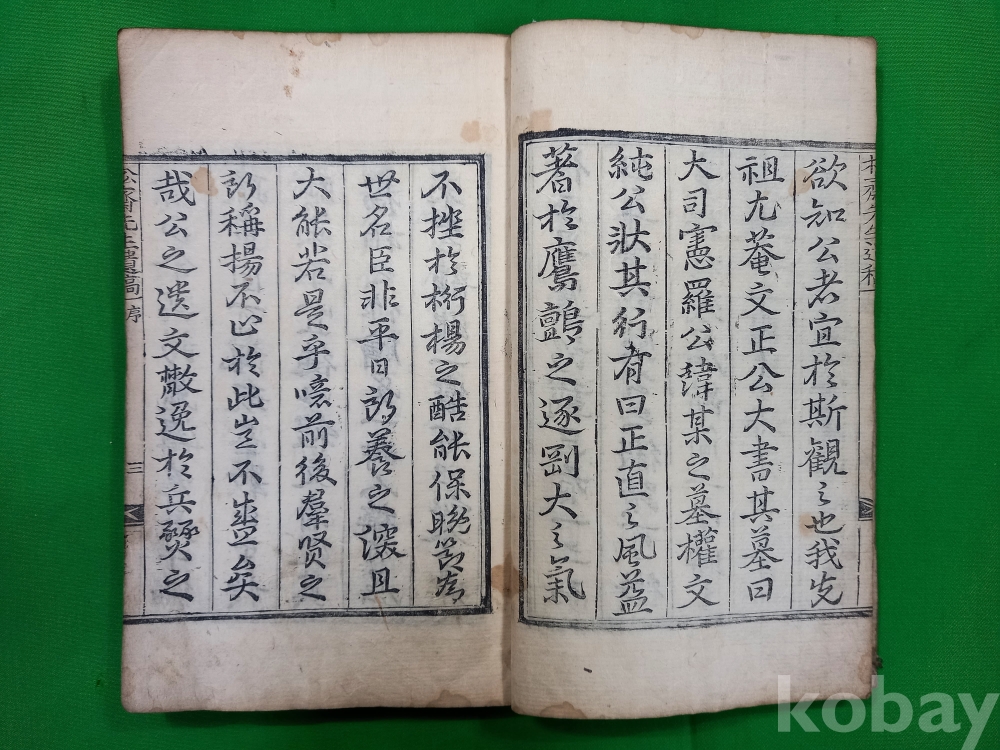 松齋先生遺稿
欲知公者宜於斯觀之也我先
祖尤菴文正公大書其墓曰
大司憲羅公諱某之墓權文
純公狀其行有曰正直之風益
著於鷹鸇之逐剛大之氣
不挫於桁楊之酷能保晩節為
世名臣非平日所養之深且
大能若是乎噫前後羣賢之
所稱揚不止於此豈不盛矣
哉公之遺文散逸於兵燹之
松齋先生遺稿 序 三
kobay